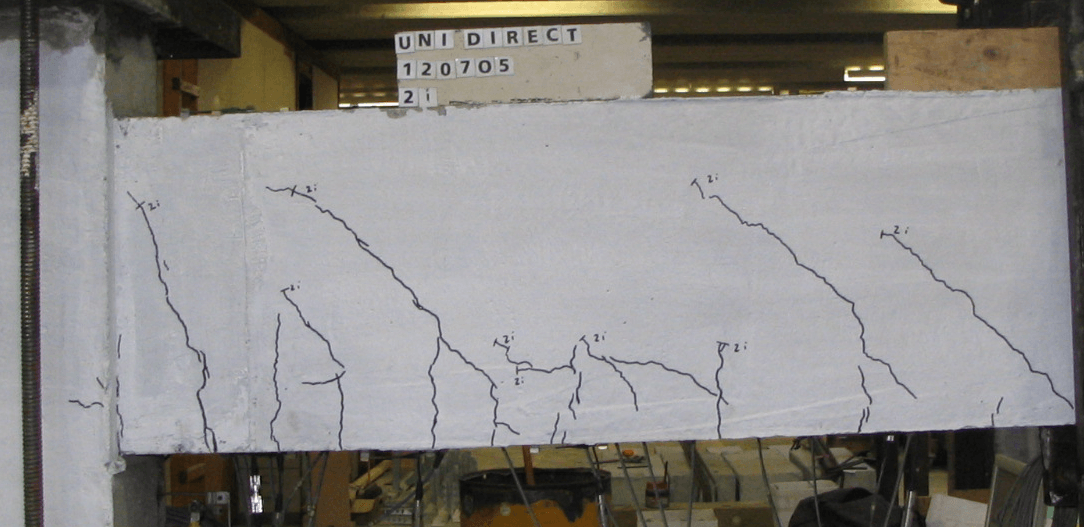 UNI DIRECT
120705
2 i
2i
2i
2i
2i
2i
2i
2i
2i
2i